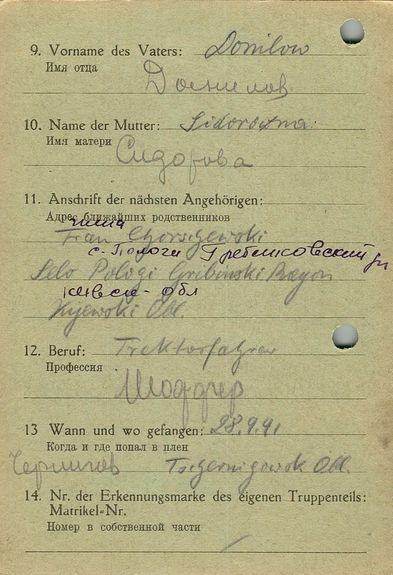 9. Vorname des Vaters: Donilow
Имя отца
Данилов
10. Name der Mutter: Sidorowna
Имя матери
Сидорова
11. Anschrift der nächsten Angehörigen:
Адрес ближайших родственников
Frau
с. Пологи Гребенковский
Selo Pologi Gribinski Rayon
обл
Kyewski Obl.
12. Beruf: Trektorfahrer
Профессия
Шоффер
13 Wann und wo gefangen: 28.9.41
Когда и где попал в плен
Чернигов Tschernigowsk Obl.
14. Nr. der Erkennungsmarke des eigenen Truppenteils:
Matrikel=Nr.
Номер в собственной части